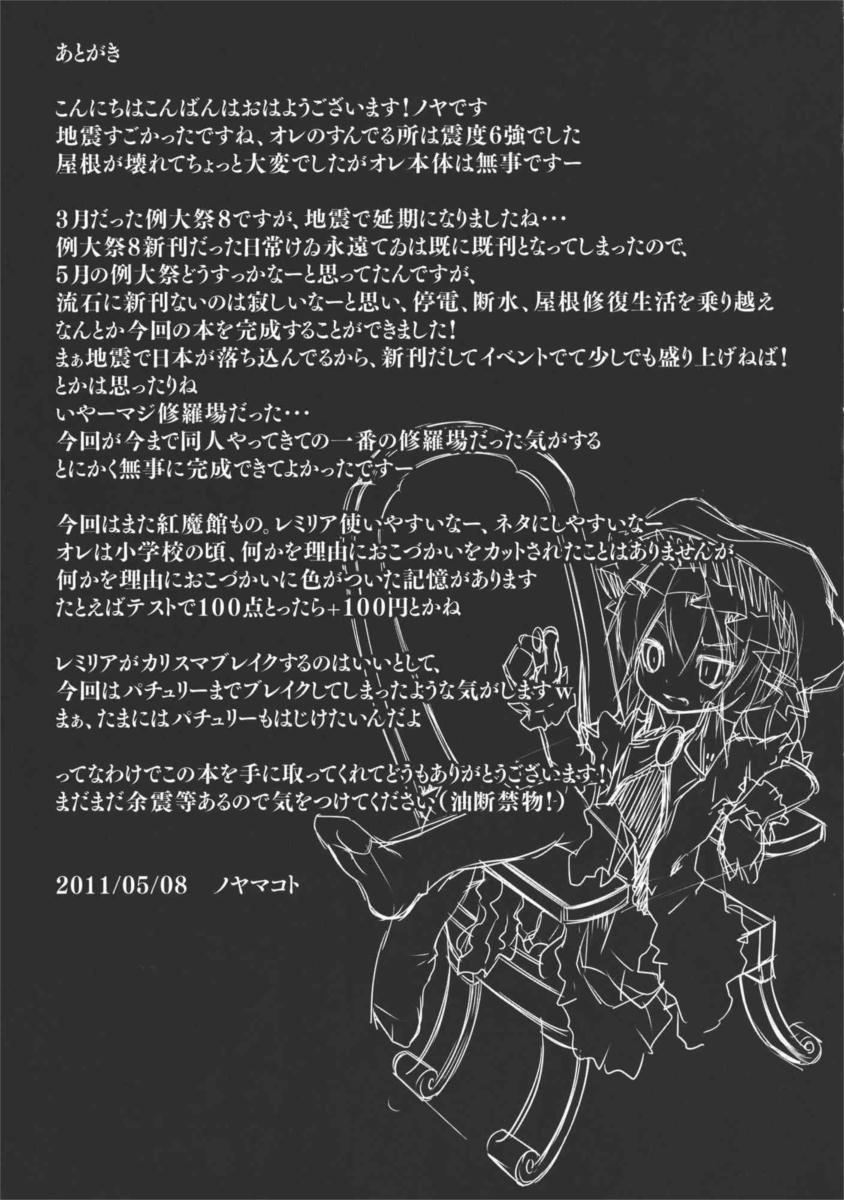 あとがき
こんにちはこんばんはおはようございます！ノヤです
地震すごかったですね、オレのすんでる所は震度6強でした
屋根が壊れてちょっと大変でしたがオレ本体は無事ですー
3月だった例大祭8ですが、地震で延期になりましたね・・・
例大祭8新刊だった日常けゐ永遠てゐは既に既刊となってしまったので、
5月の例大祭どうすっかなーと思ってたんですが、
流石に新刊ないのは寂しいなーと思い、停電、断水、屋根修復生活を乗り越え
なんとか今回の本を完成することができました！
まぁ地震で日本が落ち込んでるから、新刊だしてイベントでて少しでも盛り上げねば！
とかは思ったりね
いやーマジ修羅場だった・・・
今回が今まで同人やってきての一番の修羅場だった気がする
とにかく無事に完成できてよかったですー
今回はまた紅魔館もの。レミリア使いやすいなー、ネタにしやすいなー
オレは小学校の頃、何かを理由におこづかいをカットされたことはありませんが
何かを理由におこづかいに色がついた記憶があります
たとえばテストで100点とったら+100円とかね
レミリアがカリスマブレイクするのはいいとして、
今回はパチュリーまでブレイクしてしまったような気がしますw
まぁ、たまにはパチュリーもはじけたいんだよ
ってなわけでこの本を手に取ってくれてどうもありがとうございます！
まだまだ余震等あるので気をつけてください（油断禁物！）
2011/05/08　ノヤマコト